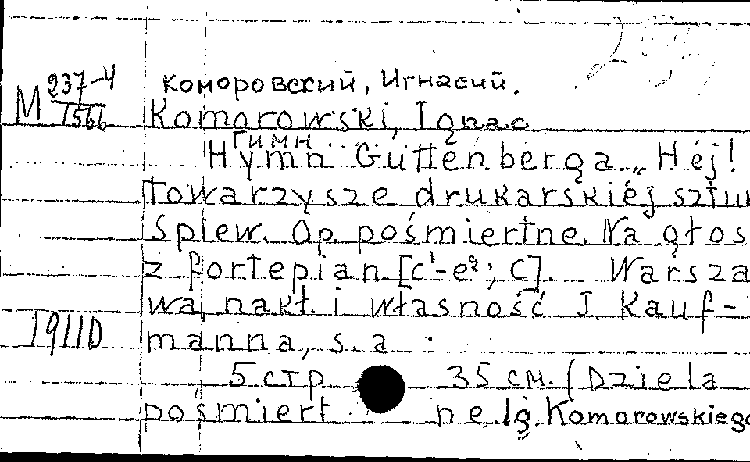 М 237-4
1566
Коморовский, Игнасий.
Komorowski, Ignac
Гимн
Hymn Guttenberga „Hej!
towarzysze drukarskiéj sztu
Śpiew. Op pośmiertne. Na głos
z fortepian. [c¹-e²; C]. Warsza
wa, nakł. i własność J. Kauf-
19110
manna, s.a.
5 стр 35 см. (Dzieła
pośmiert ne Ig. Komorowskiego